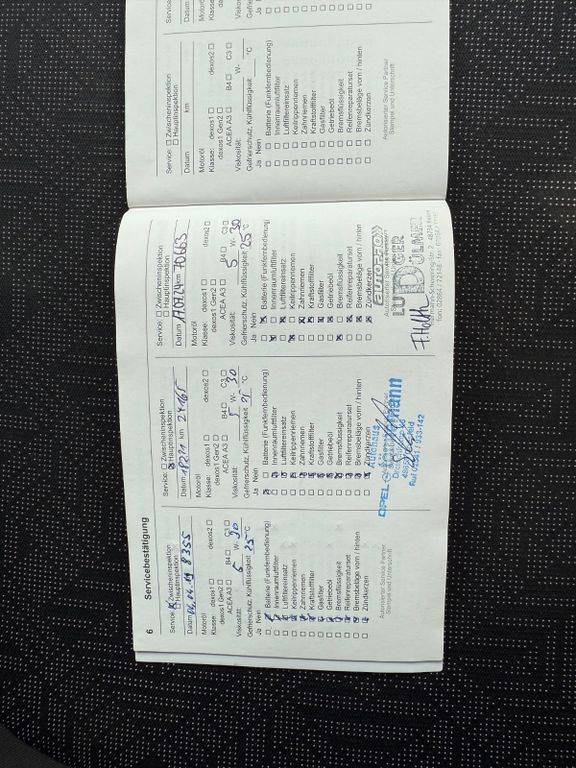 6 Servicebestätigung
Service: ☒ Zwischeninspektion
☐ Hauptinspektion
Datum 16.04.19 8355
Motoröl
Klasse: dexos1 ☐ dexos2 ☐
dexos1 Gen2 ☐
ACEA A3 ☐ B4 ☐ C3 ☐
Viskosität: 5 W- 30
Gefrierschutz, Kühlflüssigkeit 25 °C
Ja Nein
Batterie (Funkfernbedienung)
Innenraumluftfilter
Luftfiltereinsatz
Keilrippenriemen
Zahnriemen
Kraftstofffilter
Gasfilter
Getriebeöl
Bremsflüssigkeit
Reifenreparaturset
Bremsbeläge vorn / hinten
Zündkerzen
Autorisierter Service Partner
Stempel und Unterschrift
Service: ☐ Zwischeninspektion
☒ Hauptinspektion
Datum km 24165
Motoröl
Klasse: dexos1 ☐ dexos2 ☐
dexos1 Gen2 ☐
ACEA A3 ☐ B4 ☐ C3 ☐
Viskosität: 5 W- 30
Gefrierschutz, Kühlflüssigkeit 25 °C
Ja Nein
Batterie (Funkfernbedienung)
Innenraumluftfilter
Luftfiltereinsatz
Keilrippenriemen
Zahnriemen
Kraftstofffilter
Gasfilter
Getriebeöl
Bremsflüssigkeit
Reifenreparaturset
Bremsbeläge vorn / hinten
Zündkerzen
Autohaus
OPEL
Service: ☐ Zwischeninspektion
☐ Hauptinspektion
Datum 17.07.24 km 70663
Motoröl
Klasse: dexos1 ☐ dexos2 ☐
dexos1 Gen2 ☐
ACEA A3 ☐ B4 ☐ C3 ☐
Viskosität: 5 W- 30
Gefrierschutz, Kühlflüssigkeit 25 °C
Ja Nein
Batterie (Funkfernbedienung)
Innenraumluftfilter
Luftfiltereinsatz
Keilrippenriemen
Zahnriemen
Kraftstofffilter
Gasfilter
Getriebeöl
Bremsflüssigkeit
Reifenreparaturset
Bremsbeläge vorn / hinten
Zündkerzen
autoPRO
Service: ☐ Zwischeninspektion
☐ Hauptinspektion
Datum km
Motoröl
Klasse: dexos1 ☐ dexos2 ☐
dexos1 Gen2 ☐
ACEA A3 ☐ B4 ☐ C3 ☐
Viskosität: W-
Gefrierschutz, Kühlflüssigkeit °C
Ja Nein
Batterie (Funkfernbedienung)
Innenraumluftfilter
Luftfiltereinsatz
Keilrippenriemen
Zahnriemen
Kraftstofffilter
Gasfilter
Getriebeöl
Bremsflüssigkeit
Reifenreparaturset
Bremsbeläge vorn / hinten
Zündkerzen
Autorisierter Service Partner
Stempel und Unterschrift
Service:
Datum
Motoröl
Klasse:
Viskosität:
Gefrierschutz
Ja Nein